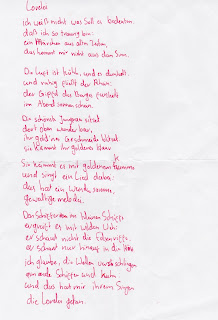 Lorelei
ich weiß nicht was soll es bedeuten
daß ich so traurig bin:
ein Märchen aus alten Zeiten,
das kommt mir nicht aus dem Sinn.
Die Luft ist kühl, und es dunkelt,
und ruhig fließt der Rhein:
der Gipfel der Berge funkelt
im Abend sonnen schein.
Die schönste Jungfrau sitzet
dort oben wunder bar,
ihr gold'nes Geschmeide blitzet
sie kämmt ihr goldenes Haar
Sie kämmt es mit goldenem
und singt ein Lied dabei;
das hat ein
gewaltige melodei.
Den Schiffer im kleinen Schiffe
ergreift es mit wildem Weh:
er schaut nicht die Felsenriffe
er schaut nur hinauf in die Höh
ich glaube, die Wellen verschlingen
am ende Schiffer und Kahn
und das hat mit ihrem Singen
die Lorelei getan.